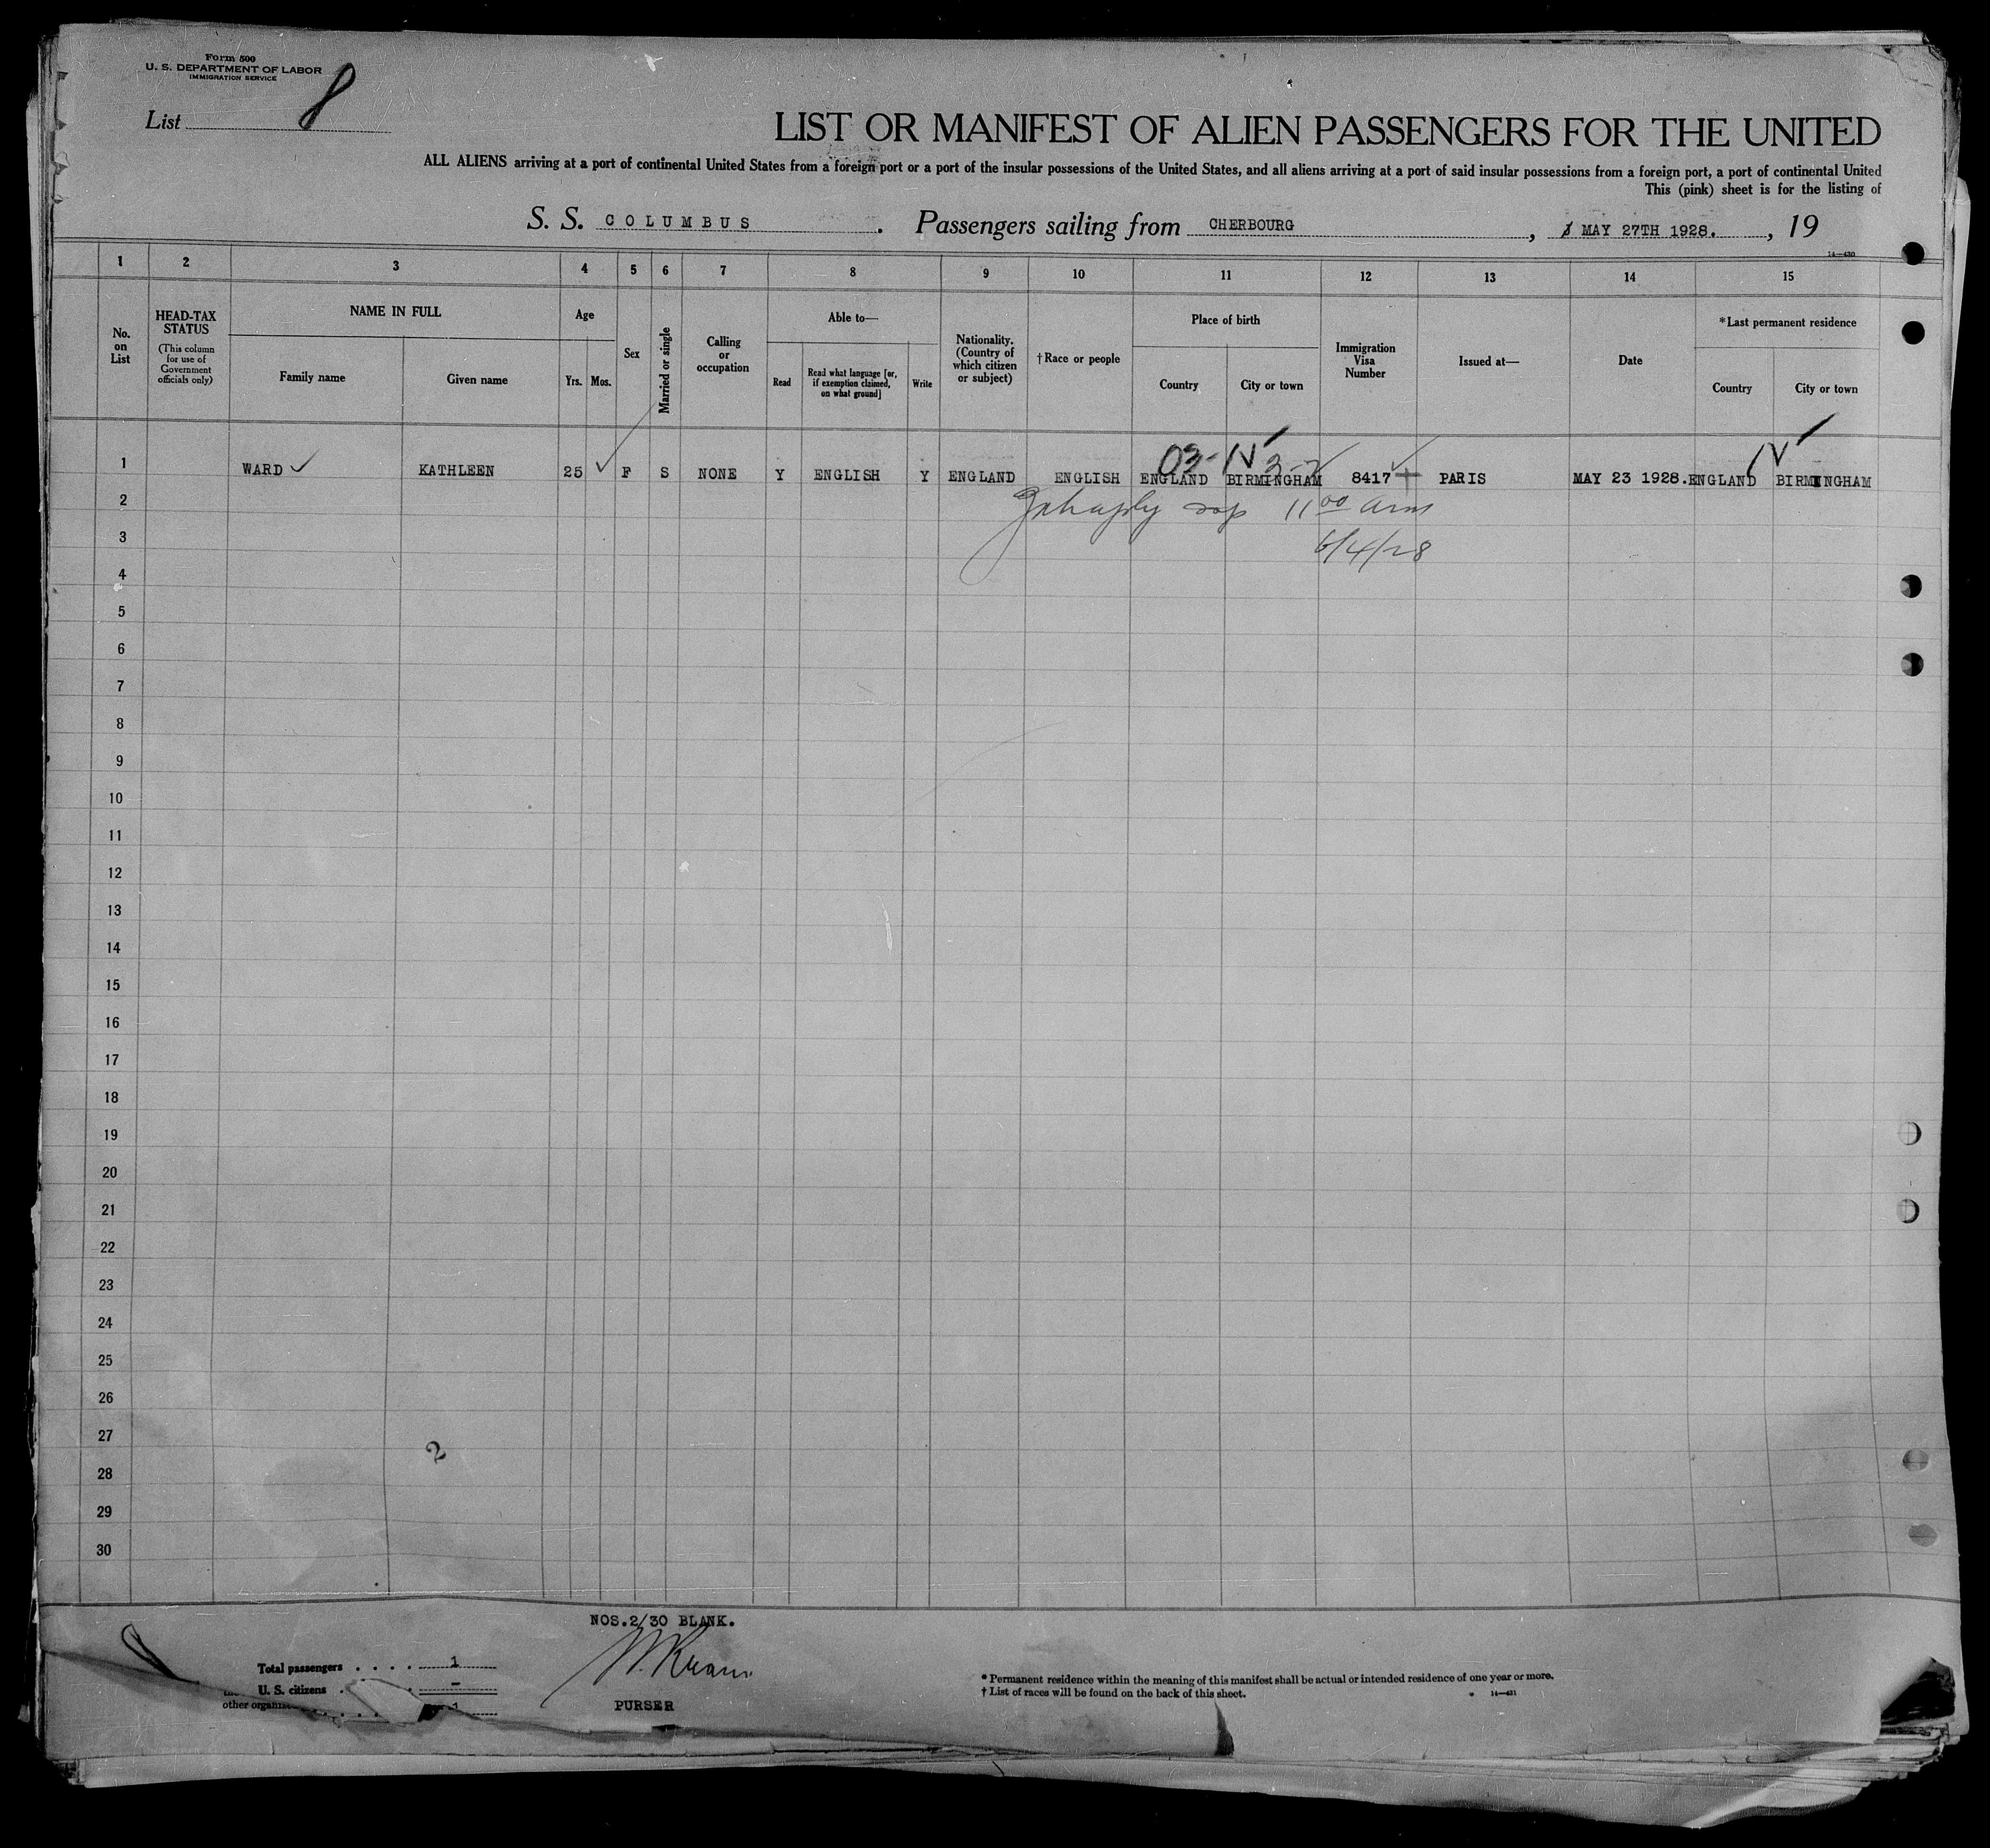 Form 500
U. S. DEPARTMENT OF LABOR
IMMIGRATION SERVICE
List 8
LIST OR MANIFEST OF ALIEN PASSENGERS FOR THE UNITED
ALL ALIENS arriving at a port of continental United States from a foreign port or a port of the insular possessions of the United States, and all aliens arriving at a port of said insular possessions from a foreign port, a port of continental United
This (pink) sheet is for the listing of
S. S. COLUMBUS . Passengers sailing from CHERBOURG , MAY 27TH 1928. , 19
14—430
1 2 3 4 5 6 7 8 9 10 11 12 13 14 15
No. on List
HEAD-TAX STATUS
(This column for use of Government officials only)
NAME IN FULL
Family name
Given name
Age
Yrs. Mos.
Sex
Married or single
Calling or occupation
Able to—
Read
Read what language [or, if exemption claimed, on what ground]
Write
Nationality. (Country of which citizen or subject)
†Race or people
Place of birth
Country
City or town
Immigration Visa Number
Issued at—
Date
*Last permanent residence
Country
City or town
03- IV IV
1 WARD KATHLEEN 25 F S NONE Y ENGLISH Y ENGLAND ENGLISH ENGLAND BIRMINGHAM 8417 PARIS MAY 23 1928. ENGLAND BIRMINGHAM
2 11 00 am
3 6/4/28
4
5
6
7
8
9
10
11
12
13
14
15
16
17
18
19
20
21
22
23
24
25
26
27
2
28
29
30
NOS.2/30 BLANK.
Total passengers . . . . 1
U. S. citizens . –
other
PURSER
* Permanent residence within the meaning of this manifest shall be actual or intended residence of one year or more.
† List of races will be found on the back of this sheet.
14—431